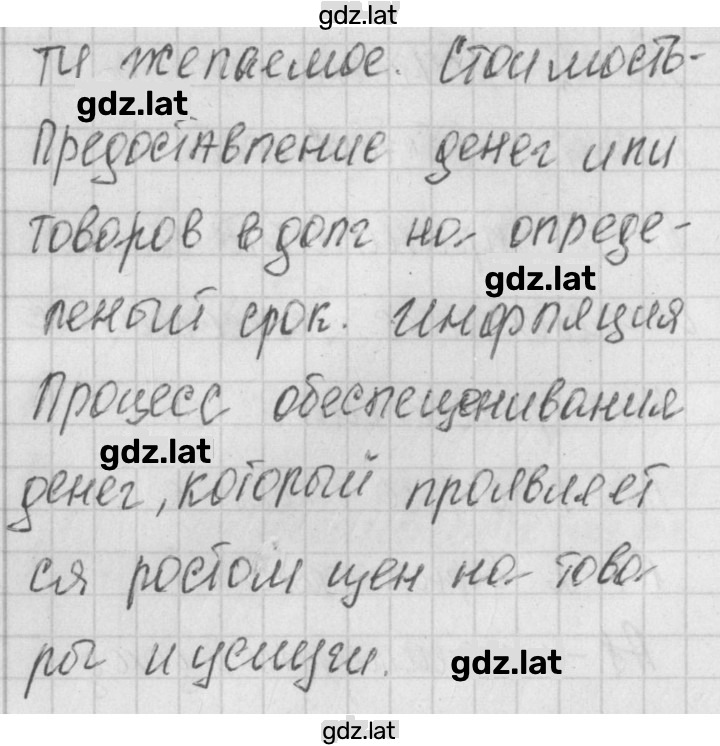 gdz.lat
ти желаемое. Стоимость-
gdz.lat
Предоставление денег или
товаров в долг на опреде-
gdz.lat
леный срок. Инфляция
Процесс обеспеценивания
gdz.lat
денег, который проявляет
ся ростом цен на това-
ры и услуги.
gdz.lat
gdz.lat